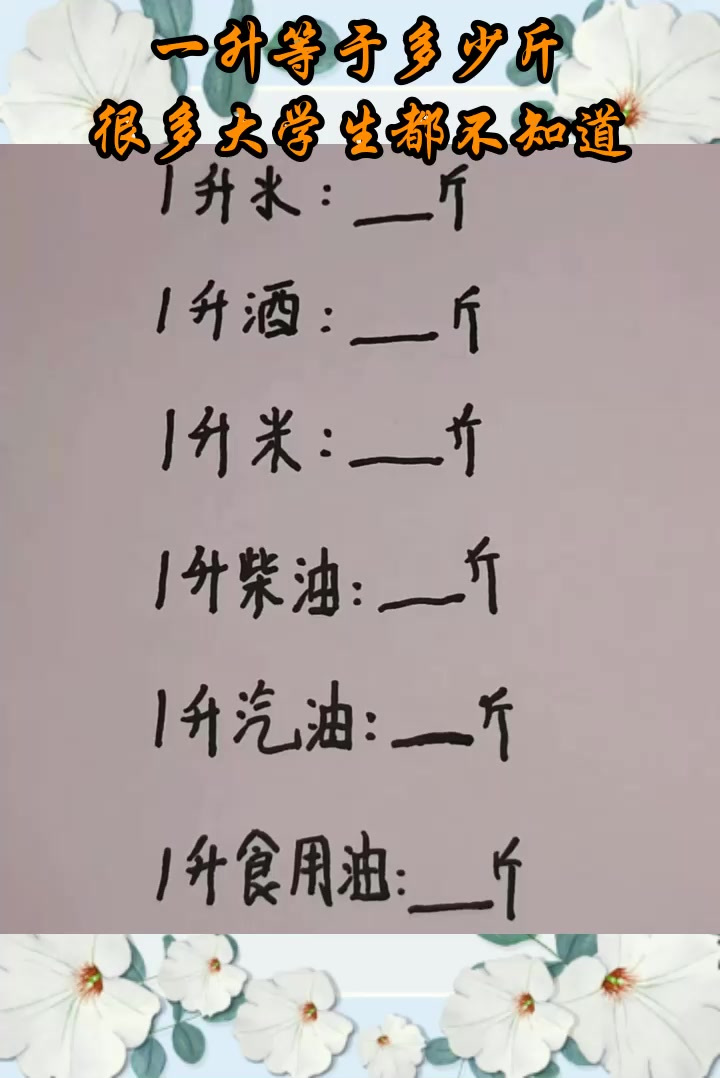 一升等于多少斤
很多大学生都不知道
1升水:__斤
1升酒:__斤
1升米:__斤
1升柴油:__斤
1升汽油:__斤
1升食用油:__斤